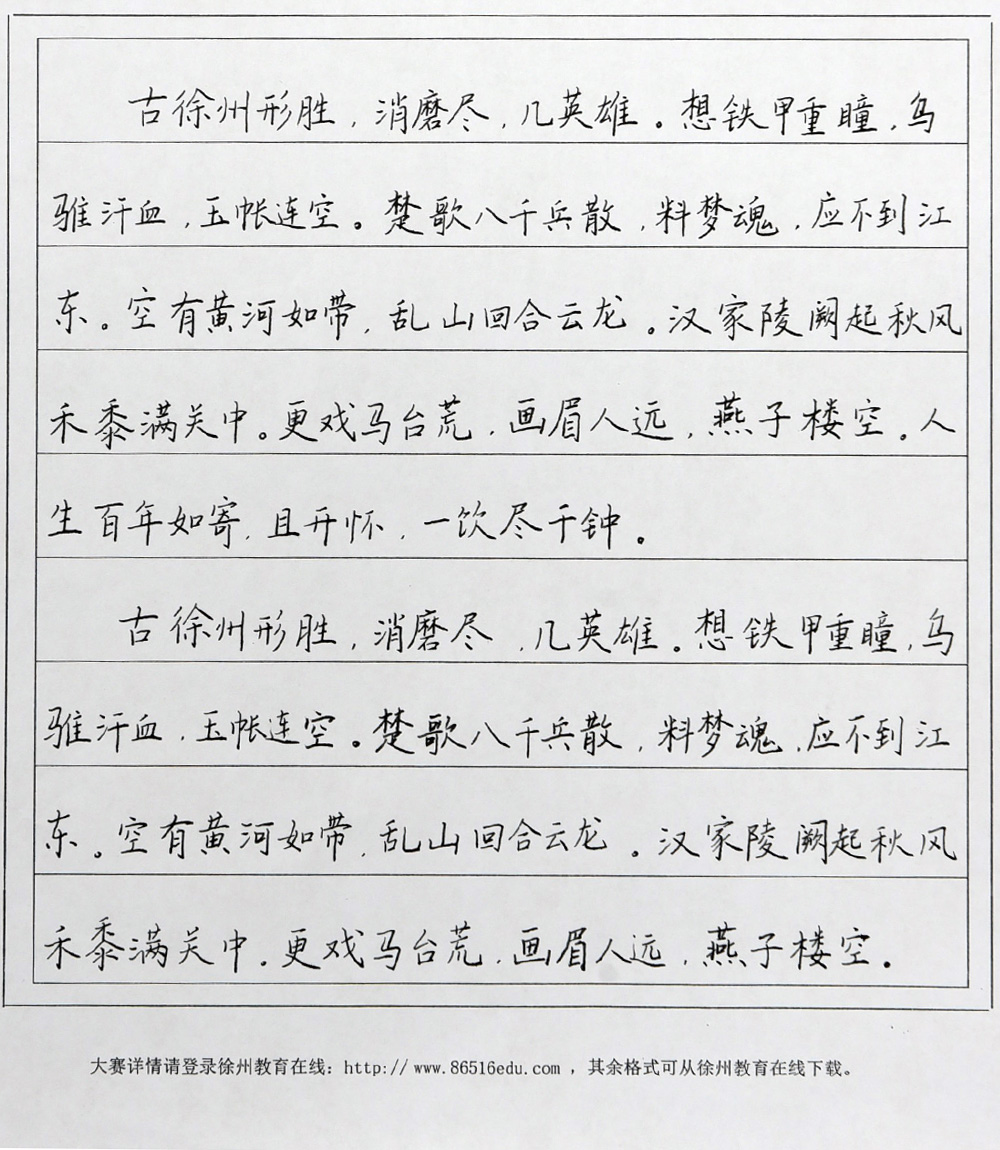 古徐州形胜，消磨尽，几英雄。想铁甲重瞳，乌
骓汗血，玉帐连空。楚歌八千兵散，料梦魂，应不到江
东。空有黄河如带，乱山回合云龙。汉家陵阙起秋风
禾黍满关中。更戏马台荒，画眉人远，燕子楼空。人
生百年如寄，且开怀，一饮尽千钟。
古徐州形胜，消磨尽，几英雄。想铁甲重瞳，乌
骓汗血，玉帐连空。楚歌八千兵散，料梦魂，应不到江
东。空有黄河如带，乱山回合云龙。汉家陵阙起秋风
禾黍满关中。更戏马台荒，画眉人远，燕子楼空。
大赛详情请登录徐州教育在线：http://www.86516edu.com，其余格式可从徐州教育在线下载。